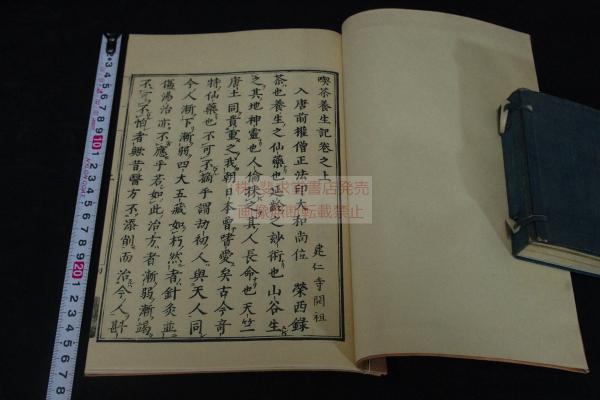 喫茶養生記卷之上
入唐前權僧正法印大和尚位 榮西錄
建仁寺開祖
茶也養生之仙藥也延齡之妙術也山谷生
之其地神靈也人倫採之其人長命也天竺
唐土同貴重之我朝日本曾嗜愛矣古今奇
特仙藥也不可不摘乎謂劫初人與天人同
今人漸下漸弱四大五藏如朽然者針灸並
傷湯治亦不應乎若如此治方者漸弱漸竭
不可不怕者歟昔醫方不添削而治今人斟
画像無断転載禁止